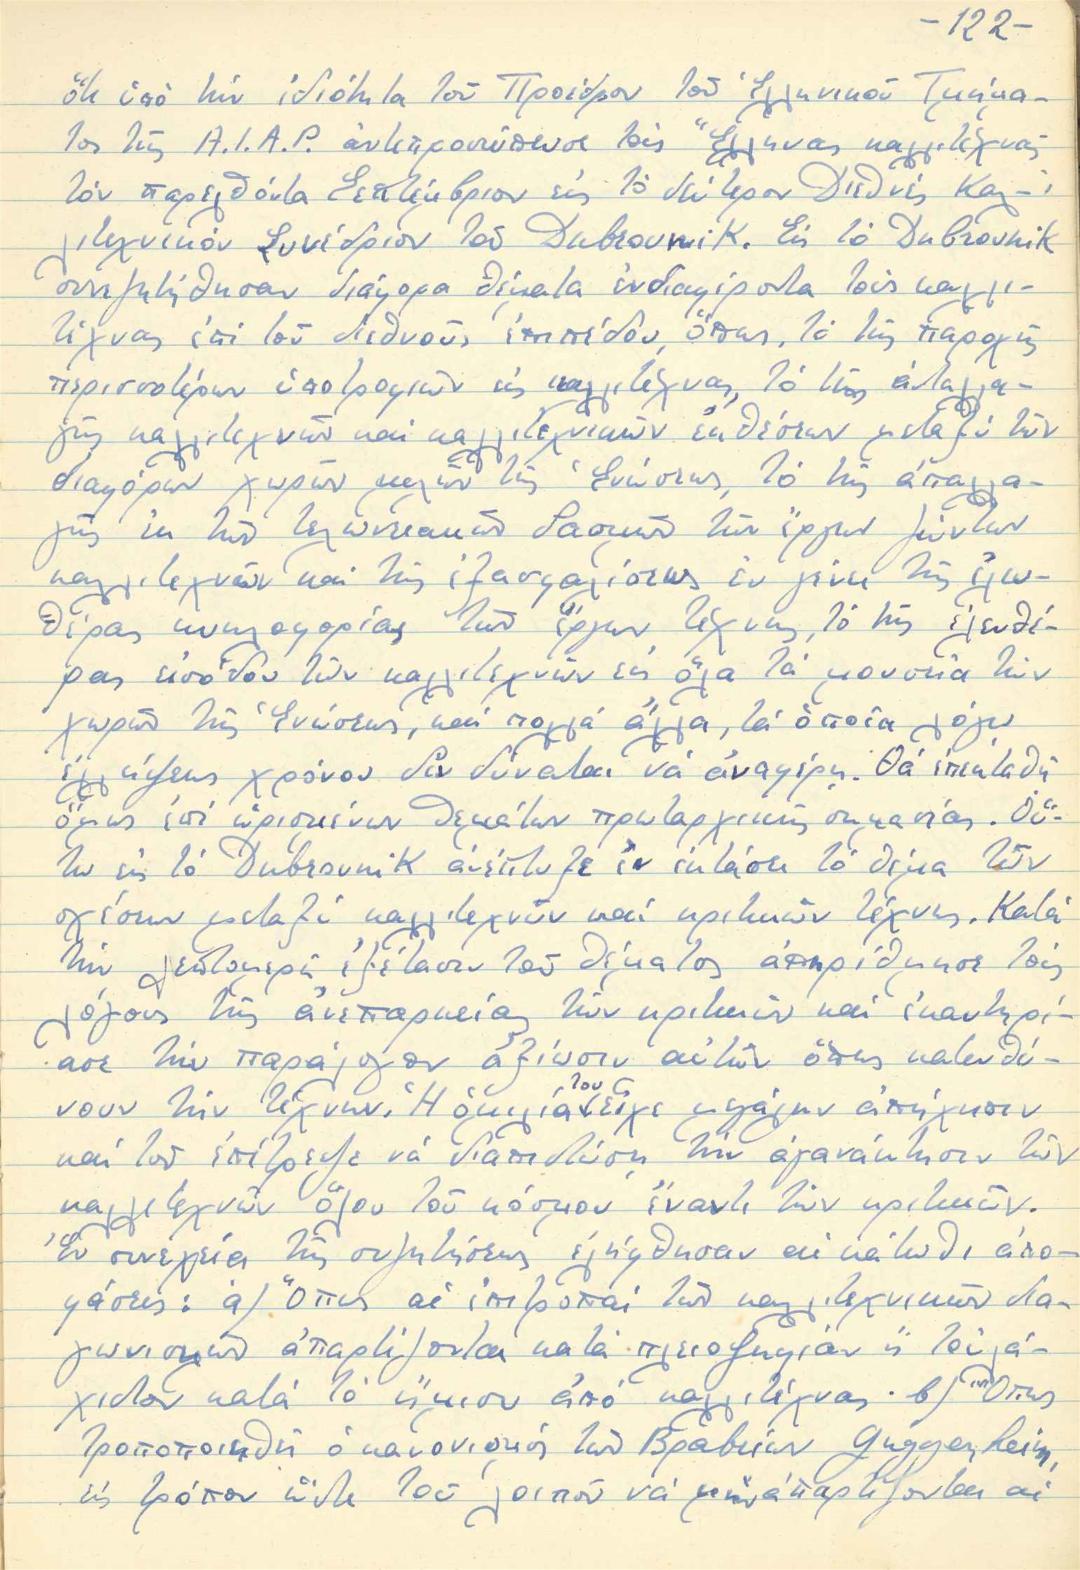 -122-
ὅτι ὑπό τήν ἰδιότητα τοῦ Προέδρου τοῦ Ἑλληνικοῦ Τμήμα-
τος τῆς A.I.A.P. ἀντεπροσώπευσε τούς Ἕλληνας καλλιτέχνας
τόν παρελθόντα Σεπτέμβριον εἰς τό δεύτερον Διεθνές Καλ-
λιτεχνικόν Συνέδριον τοῦ Dubrovnik. Εἰς τό Dubrovnik
συνεζητήθησαν διάφορα θέματα ἐνδιαφέροντα τούς καλλι-
τέχνας ἐπί τοῦ διεθνοῦς ἐπιπέδου, ὅπως, τό τῆς παροχῆς
περισσοτέρων ὑποτροφιῶν εἰς καλλιτέχνας, τό τῆς ἀνταλλα-
γῆς καλλιτεχνῶν καί καλλιτεχνικῶν ἐκθέσεων μεταξύ τῶν
διαφόρων χωρῶν μελῶν τῆς Ἑνώσεως, τό τῆς ἀπαλλα-
γῆς ἐκ τῶν τελωνειακῶν δασμῶν τῶν ἔργων ζώντων
καλλιτεχνῶν καί τῆς ἐξασφαλίσεως ἐν γένει τῆς ἐλευ-
θέρας κυκλοφορίας τῶν ἔργων τέχνης, τό τῆς ἐλευθέ-
ρας εἰσόδου τῶν καλλιτεχνῶν εἰς ὅλα τά μουσεῖα τῶν
χωρῶν τῆς Ἑνώσεως, καί πολλά ἄλλα, τά ὁποῖα λόγω
ἐλλείψεως χρόνου δέν δύναται νά ἀναφέρῃ. Θά ἐπεκταθῇ
ὅμως ἐπί ὡρισμένων θεμάτων πρωταρχικῆς σημασίας. Οὕ-
τω εἰς τό Dubrovnik ἀνέπτυξε ἐν ἐκτάσει τό θέμα τῶν
σχέσεων μεταξύ καλλιτεχνῶν καί κριτικῶν τέχνης. Κατά
τήν λεπτομερῆ ἐξέτασιν τοῦ θέματος ἀπηρίθμησε τούς
λόγους τῆς ἀνεπαρκείας τῶν κριτικῶν καί ἐκαυτηρί-
ασε τήν παράλογον ἀξίωσιν αὐτῶν ὅπως κατευθύ-
νουν τήν τέχνην. Ἡ ὁμιλία του εἶχε μεγάλην ἀπήχησιν
καί τοῦ ἐπέτρεψε νά διαπιστώσῃ τήν ἀγανάκτησιν τῶν
καλλιτεχνῶν ὅλου τοῦ κόσμου ἔναντι τῶν κριτικῶν.
Ἐν συνεχείᾳ τῆς συζητήσεως ἐλήφθησαν αἱ κάτωθι ἀπο-
φάσεις: α) Ὅπως αἱ ἐπιτροπαί τῶν καλλιτεχνικῶν δια-
γωνισμῶν ἀπαρτίζονται κατά πλειοψηφίαν ἤ τοὐλά-
χιστον κατά τό ἥμισυ ἀπό καλλιτέχνας. β) Ὅπως
τροποποιηθῇ ὁ κανονισμός τῶν Βραβείων Guggenheim,
εἰς τρόπον ὥστε τοῦ λοιποῦ νά μήν ἀπαρτίζονται αἱ